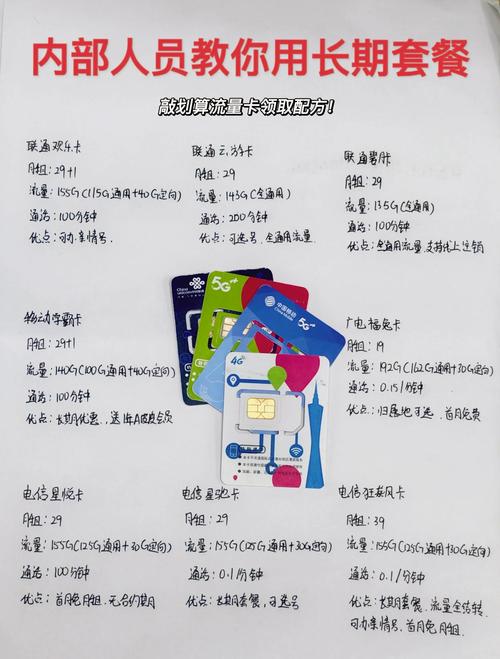 内部人员教你用长期套餐
敲划算流量卡领取配方!
联通欢4卡
月租:29+1
流量:155G(115G通用+40G定向)
通话:100分钟
优点:可办亲情号
联通云游卡
月租:29
流量:143G(全通用)
通话:200分钟
优点:可选号、全通用流量
联通
月租:29
流量:135G(全通用)
通话:100分钟
优点:全通用流量、支持线上注销
移动学霸卡
月租:29+1
流量:140G(100G通用+40G定向)
通话:100分钟
优点:长期优惠、送1年会员
China
5G+
中国移动
China Mobile
4G
广电福兔卡
月租:19
流量:192G(162G通用+30G定向)
通话:0.15/分钟
优点:归属地可选、首月免费
电信星悦卡
月租:29
流量:155G(125G通用+30G定向)
通话:100分钟
优点:首月免月租、无合约期
电信星驰卡
月租:29
流量:155G(125G通用+30G定向)
通话:0.1/分钟
优点:长期套餐、可选号
电信狂飙风卡
月租:39
流量:155G(125G通用+30G定向)
通话:0.1/分钟
优点:长期套餐、流量全结转
可办亲情号、首月免月租